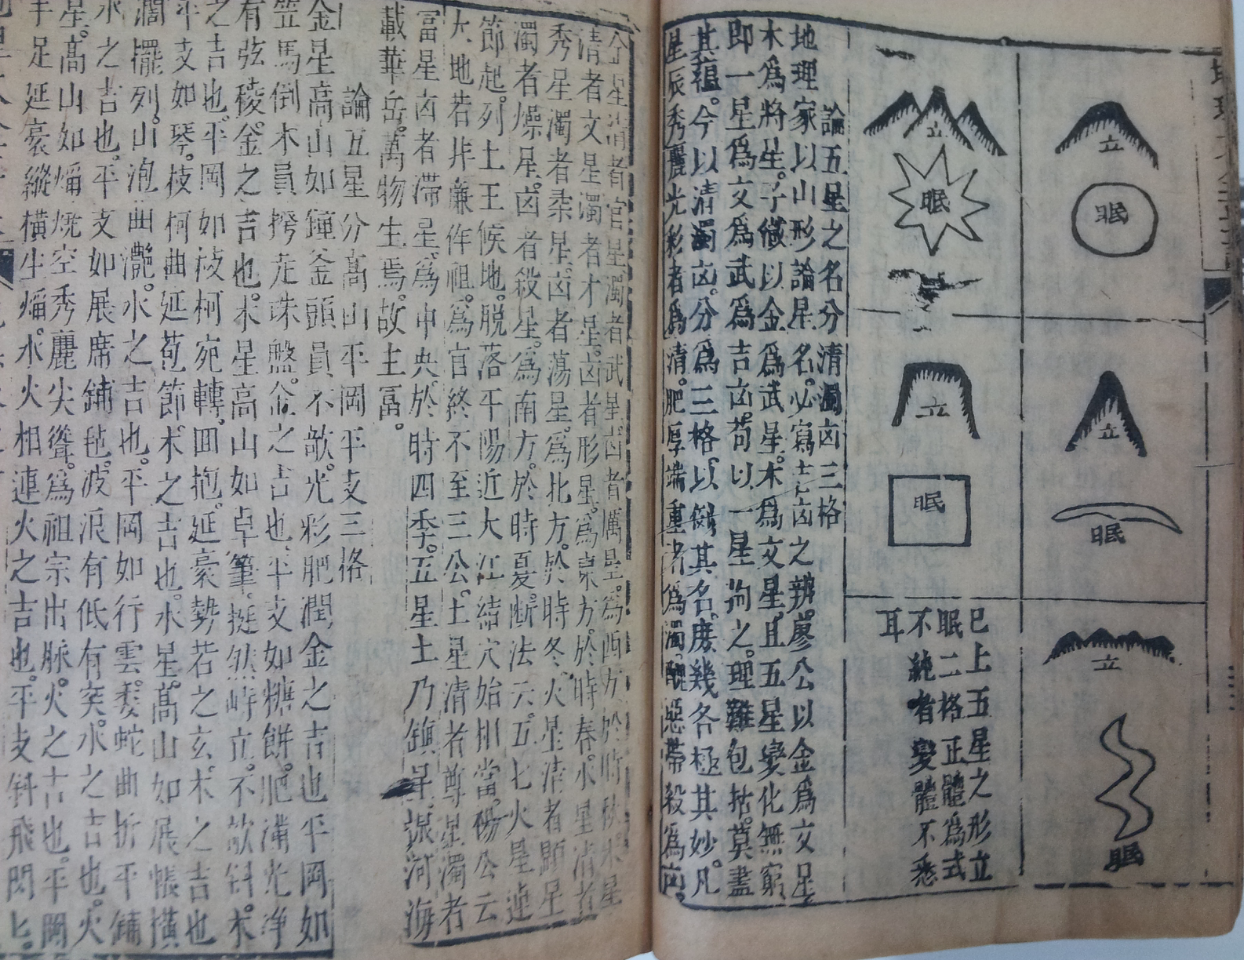 立
眠
立
眠
立
眠
立
眠
立
眠
已上五星之形立
眠二格正體為式
不純者變體不悉
耳
論五星之名分清濁凶三格
地理家以山形論星名必寫吉凶之辨廖公以金為文星
木為將星子僟以金為武星木為文星且五星變化無窮
即一星為文為武為吉凶苟以一星拘之理難包括莫盡
其蘊今以清濁凶分為三格以倣其名庶幾各極其妙凡
星辰秀麗光彩者為清肥厚端重者為濁醜惡帶殺為凶
金星清者官星濁者武星凶者厲星為西方於時秋木星
清者文星濁者才星凶者形星為東方於時春水星清者
秀星濁者柔星凶者蕩星為北方於時冬火星清者顯星
濁者燥星凶者殺星為南方於時夏斷法云五七火星連
節起列土王候地脫落平陽近大江結穴始相當楊公云
大地若非廉作祖為官終不至三公土星清者尊星濁者
富星凶者滯星為中央於時四季五星土乃鎮星振河海
載華岳萬物生焉故主富
論五星分高山平岡平支三格
金星高山如鐘釜頭員不欹光彩肥潤金之吉也平岡如
笠馬倒木員撐走珠盤金之吉也平支如糖餅肥滿光淨
有弦稜金之吉也木星高山如卓筆挺然峙立不欹斜木
之吉也平岡如枝柯宛轉回抱延豪勢若之玄木之吉也
平支如琴枝柯曲延苞節木之吉也水星高山如展帳橫
濶擺列山泡曲灧水之吉也平岡如行雲委蛇曲折平鋪
水之吉也平支如展席鋪毡波浪有低有突水之吉也火
星高山如熖燒空秀麗尖聳為祖宗出脉火之吉也平岡
手足延豪縱橫生熖水火相連火之吉也平支斜飛閃